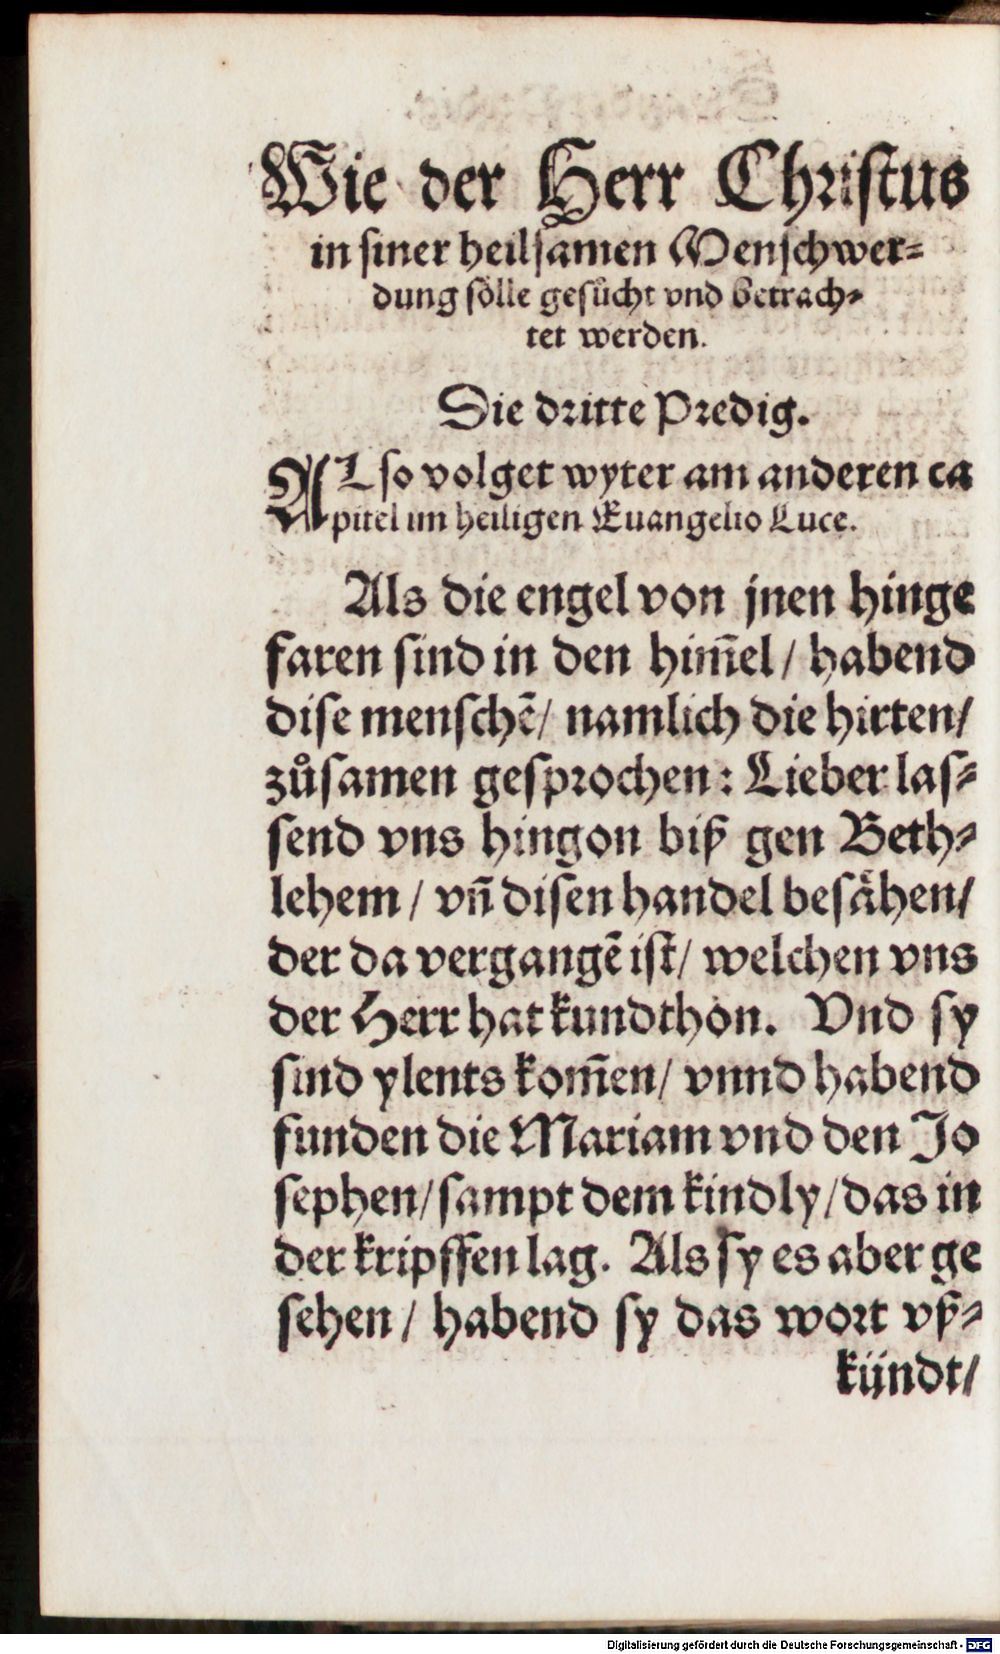 Wie der Herr Christus
in siner heilsamen Menschwer⸗
dung soͤlle gesuͦcht vnd betrach⸗
tet werden.
Die dritte Predig.
ALso volget wyter am anderen ca
pitel im heiligen Euangelio Luce.
Als die engel von jnen hinge
faren sind in den him̃el / habend
dise menschẽ / namlich die hirten /
zuͦsamen gesprochen : Lieber las⸗
send vns hingon biß gen Beth⸗
lehem / vñ disen handel besaͤhen /
der da vergangẽ ist / welchen vns
der Herr hat kundthon. Vnd sy
sind ylents kom̃en / vnnd habend
funden die Mariam vnd den Jo
sephen / sampt dem kindly / das in
der kripffen lag. Als sy es aber ge
sehen / habend sy das wort vß⸗
kündt /
Digitalisierung gefördert durch die Deutsche Forschungsgemeinschaft - DFG